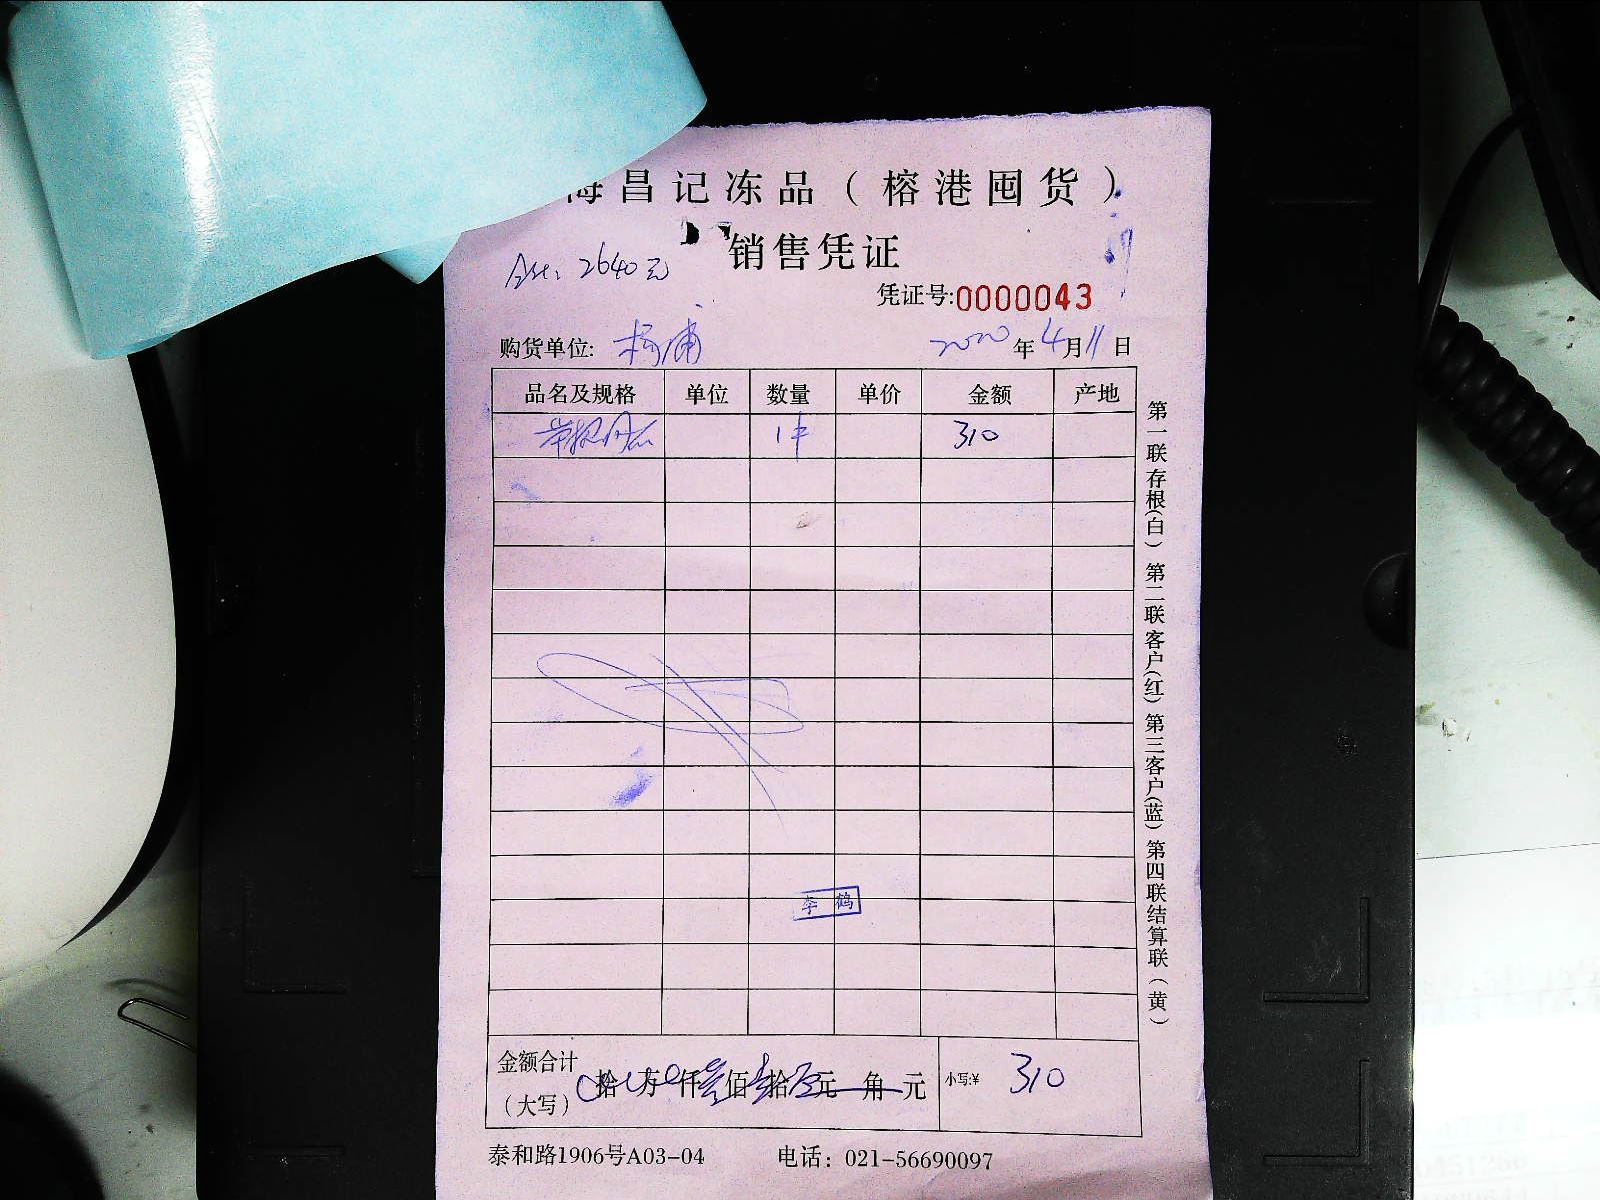 海昌记冻品（榕港囤货）
销售凭证
2640元
凭证号:0000043
购货单位: 杨浦 2020年4月11日
品名及规格 单位 数量 单价 金额 产地
1件 310
李 鹤
金额合计
（大写） 拾 万 仟 叁佰 壹拾 元 角 元 小写:¥ 310
泰和路1906号A03-04 电话：021-56690097
第一联存根(白)第二联客户(红)第三客户(蓝)第四联结算联(黄)